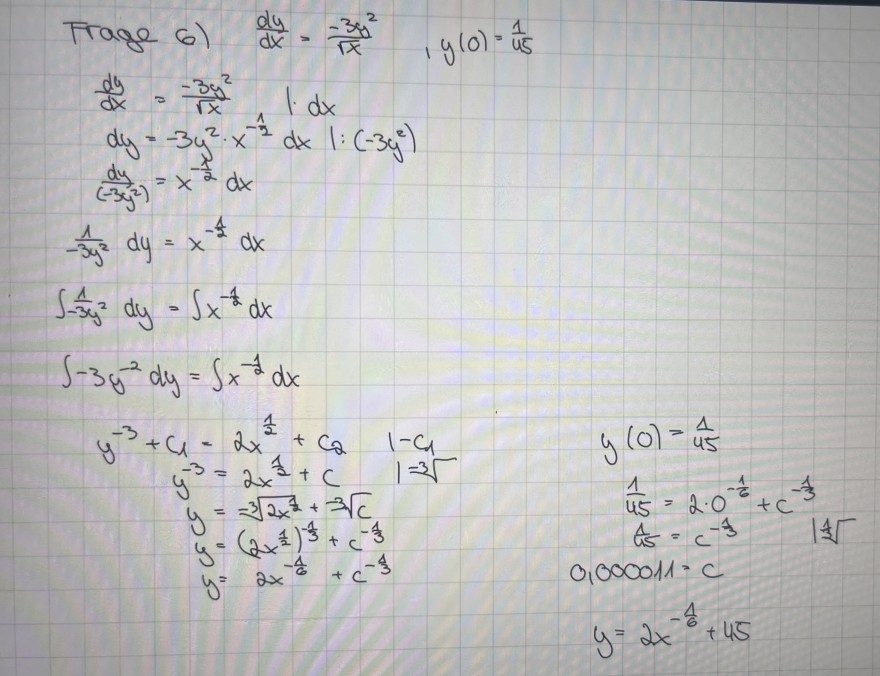 Frage 6) dy/dx = -3y²/√x , y(0) = 1/45
dy/dx = -3y²/√x |· dx
dy = -3y² · x^(-1/2) dx |: (-3y²)
dy/(-3y²) = x^(-1/2) dx
1/-3y² dy = x^(-1/2) dx
∫ 1/-3y² dy = ∫ x^(-1/2) dx
∫ -3y^(-2) dy = ∫ x^(-1/2) dx
y^(-3) + C₁ = 2x^(1/2) + C₂ |-C₁
y^(-3) = 2x^(1/2) + C |⁻³√
y = ⁻³√(2x^(1/2)) + ⁻³√C
y = (2x^(1/2))^(-1/3) + C^(-1/3)
y = 2x^(-1/6) + C^(-1/3)
y(0) = 1/45
1/45 = 2·0^(-1/6) + C^(-1/3)
1/45 = C^(-1/3)
0,000011 = C
y = 2x^(-1/6) + 45